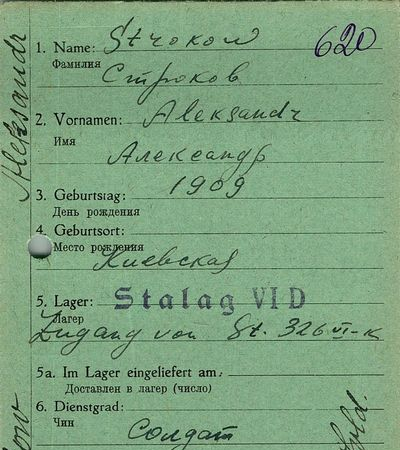 620
1. Name: Strokow
Фамилия
Строков
2. Vornamen: Aleksandr
Имя
Александр
3. Geburtstag: 1909
День рождения
4. Geburtsort:
Место рождения
Киевская
5. Lager: Stalag VI D
Лагер
Zugang von St. 326 VI-K
5a. Im Lager eingeliefert am:
Доставлен в лагер (число)
6. Dienstgrad:
Чин
Солдат
Aleksandr